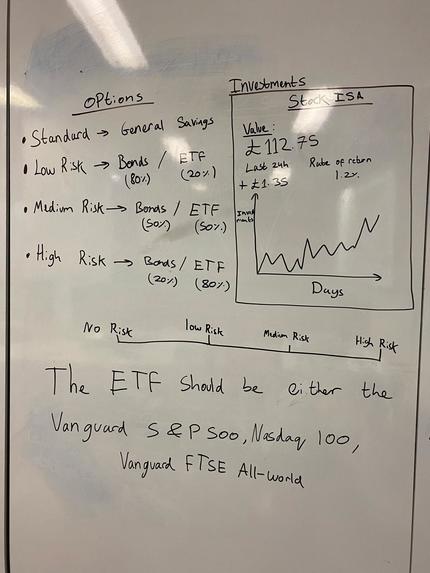 Options
• Standard → General Savings
• Low Risk → Bonds / ETF
(80%) (20%)
• Medium Risk → Bonds / ETF
(50%) (50%)
• High Risk → Bonds / ETF
(20%) (80%)
Investments
Stock ISA
Value:
£112.75
Last 24h Rate of return
+ £1.35 1.2%
Invest
ments
Days
No Risk low Risk Medium Risk High Risk
The ETF Should be either the
Vanguard S & P 500, Nasdaq 100,
Vanguard FTSE All-world